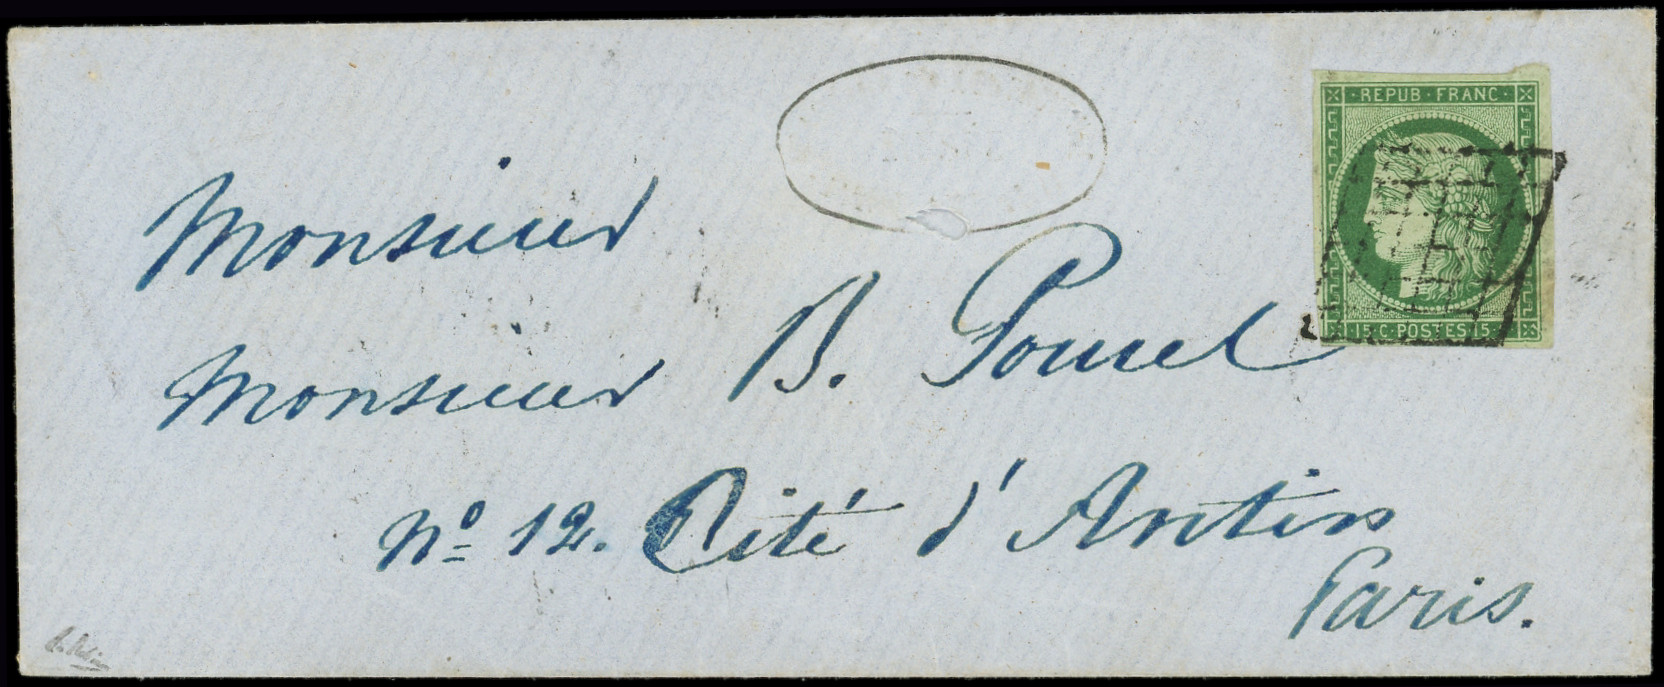 REPUB · FRANC ·
15 · C · POSTES 15 ·
Monsieur
Monsieur B. Pourel
No 12. Cité d'Antin
Paris.